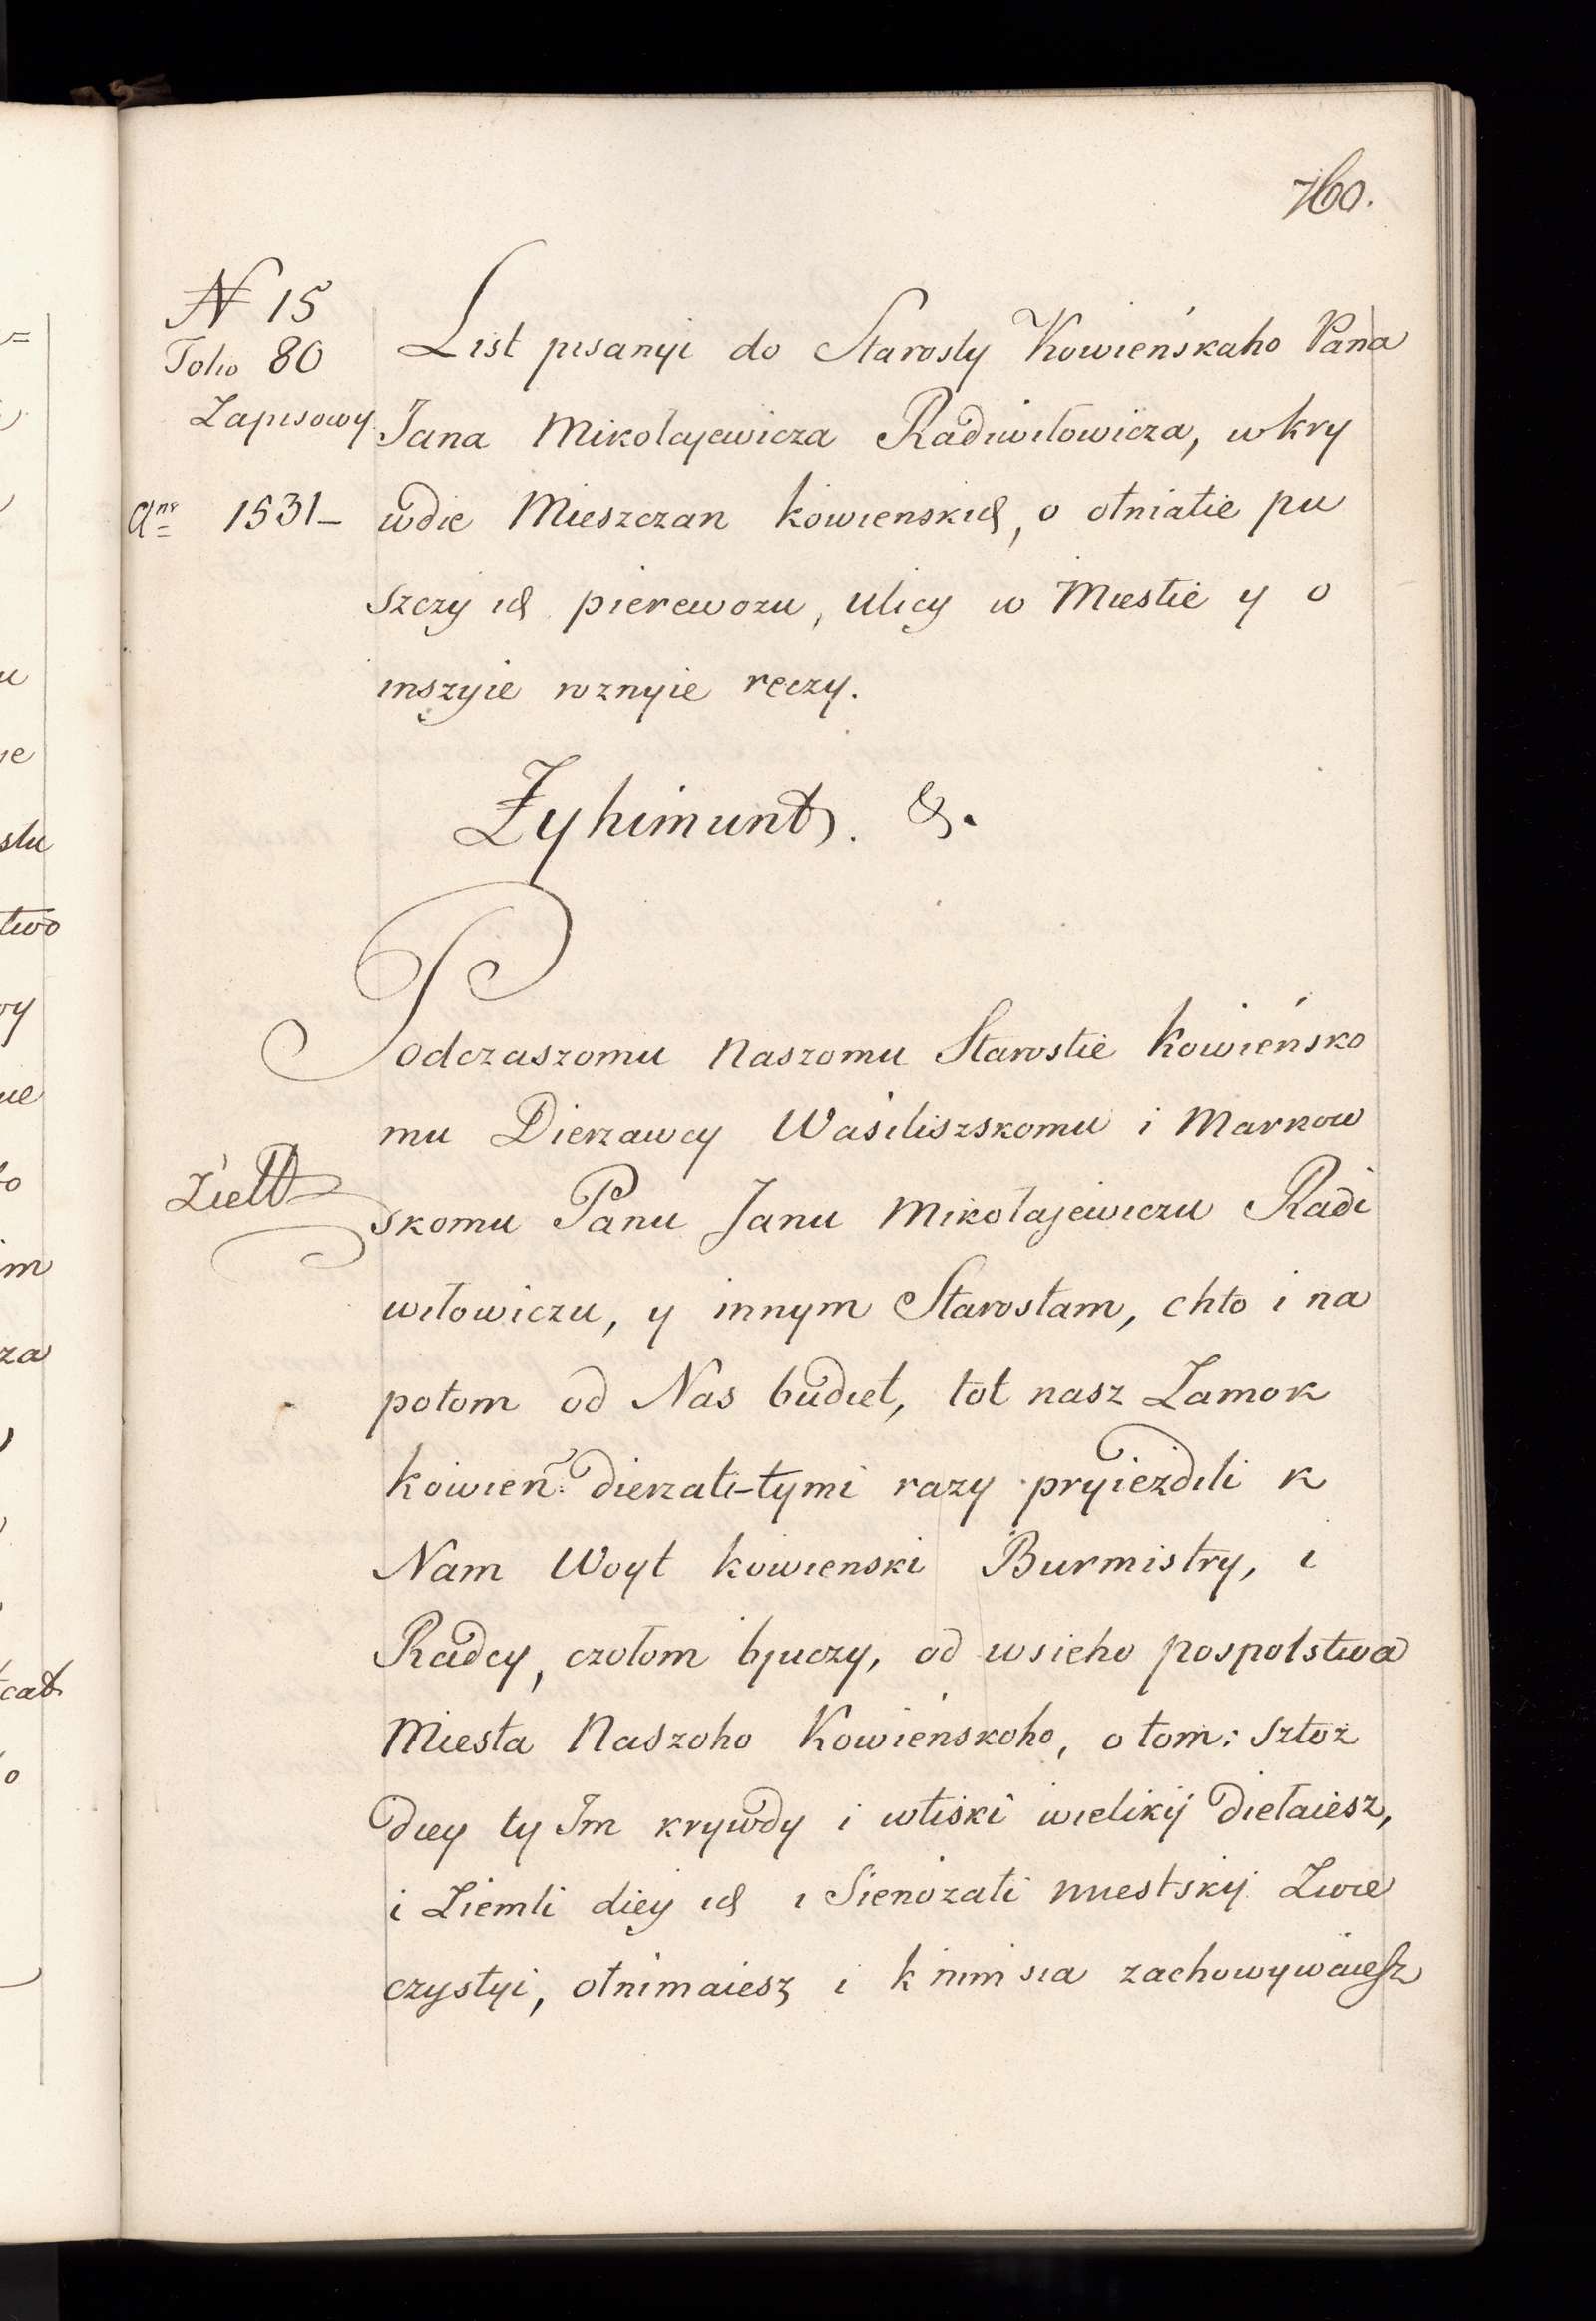 760.
N 15
Folio 80
Zapisowy
Anno 1531 –
List pisanyi do Starosty Kowieńskaho Pana
Jana Mikołajewicza Radiwiłowicza, w kry
wdie Mieszczan kowienskich, o otniatie pu
szczy ich pierewozu, ulicy w Miestie y o
inszyie roznyie reczy.
Żyhimunt. &.
Podczaszomu naszomu Starostie kowieńsko
mu Dierzawcy Wasiliszskomu i Markow
skomu Panu Janu Mikołajewiczu Radi
wiłowiczu, y innym Starostam, chto i na
potom od Nas budiet, tot nasz Zamok
kowień: dierzati-tymi razy pryiezdili k
Nam Woyt kowienski Burmistry, i
Radcy, czołom bjuczy, od wsieho pospolstwa
Miesta Naszoho Kowieńskoho, o tom: sztoż
diey ty Im krywdy i wtiski wielikij diełaiesz,
i Ziemli diey ich i Sienożati miestskij Zwie
czystyi, otnimaiesz i k nim sia zachowywaiesz